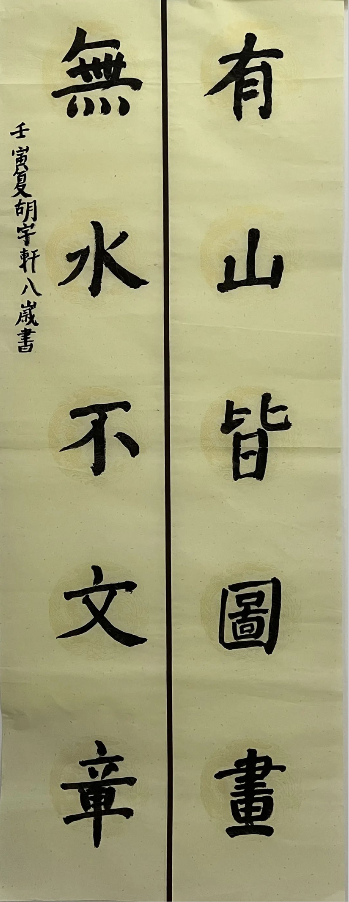 有山皆圖畫
無水不文章
壬寅夏胡宇軒八歲書